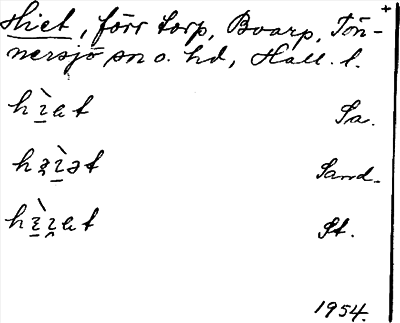 Hiet, förr torp, Boarp, Tön-
nersjö sn o. hd, Hall. l.
hìet Sa.
Sand.
St.
1954.